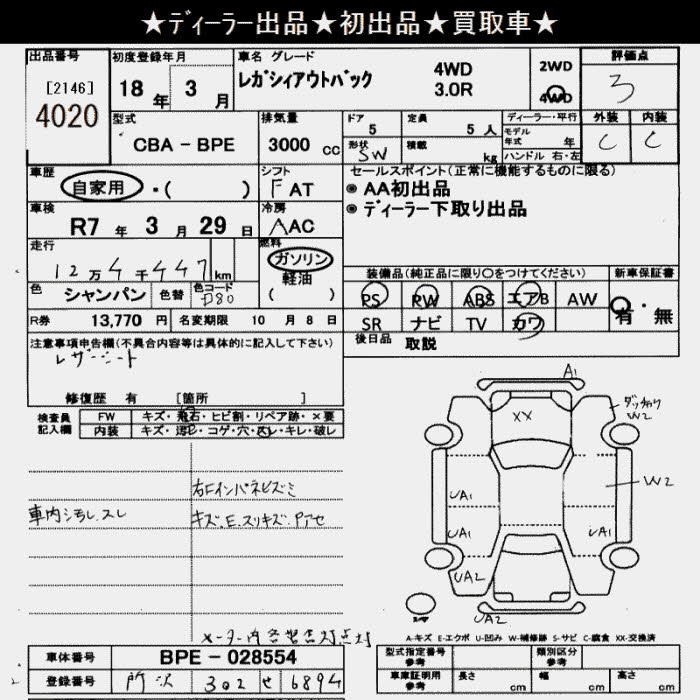 ★ディーラー出品★初出品★買取車★
出品番号
[2146]
4020
初度登録年月
18 年 3 月
車名 グレード
レガシィアウトバック
4WD
3.0R
2WD
4WD
評価点
3
型式
CBA - BPE
排気量
3000 cc
ドア
5
定員
5 人
形状
SW
積載
kg
ディーラー・平行
モデル
年式 年
ハンドル 右・左
外装
C
内装
C
車歴
自家用 ・( )
シフト
F AT
車検
R7 年 3 月 29 日
冷房
AAC
走行
12万4千447 km
燃料
ガソリン
軽油
( )
色
シャンパン
色替
色コード
D80
R券
13,770 円
名変期限
10 月 8 日
セールスポイント(正常に機能するものに限る)
◉ AA初出品
◉ ディーラー下取り出品
装備品(純正品に限り〇をつけてください)
PS PW ABS エアB AW
SR ナビ TV カワ
新車保証書
有・無
後日品 取説
注意事項申告欄(不具合内容等は具体的に記入して下さい)
レザーシート
修復歴 有 [箇所 ]
検査員
記入欄
FW
キズ・飛石・ヒビ割・リペア跡・×要
内装
キズ・汚レ・コゲ・穴・スレ・キレ・破レ
右Fインパネヒズミ
車内シ汚レ、スレ
キズ.E.スリキズ.Pアセ
メーター内各警告灯点灯
A1
XX
W2
W2
UA1
UA1
UA1
UA2
UA2
A-キズ E-エクボ U-凹み W-補修跡 S-サビ C-腐食 XX-交換済
車体番号
BPE - 028554
登録番号
所沢 302 せ 6894
型式指定番号
参考
類別区分
参考
車庫証明用
参考
長さ
cm
幅
cm
高さ
cm